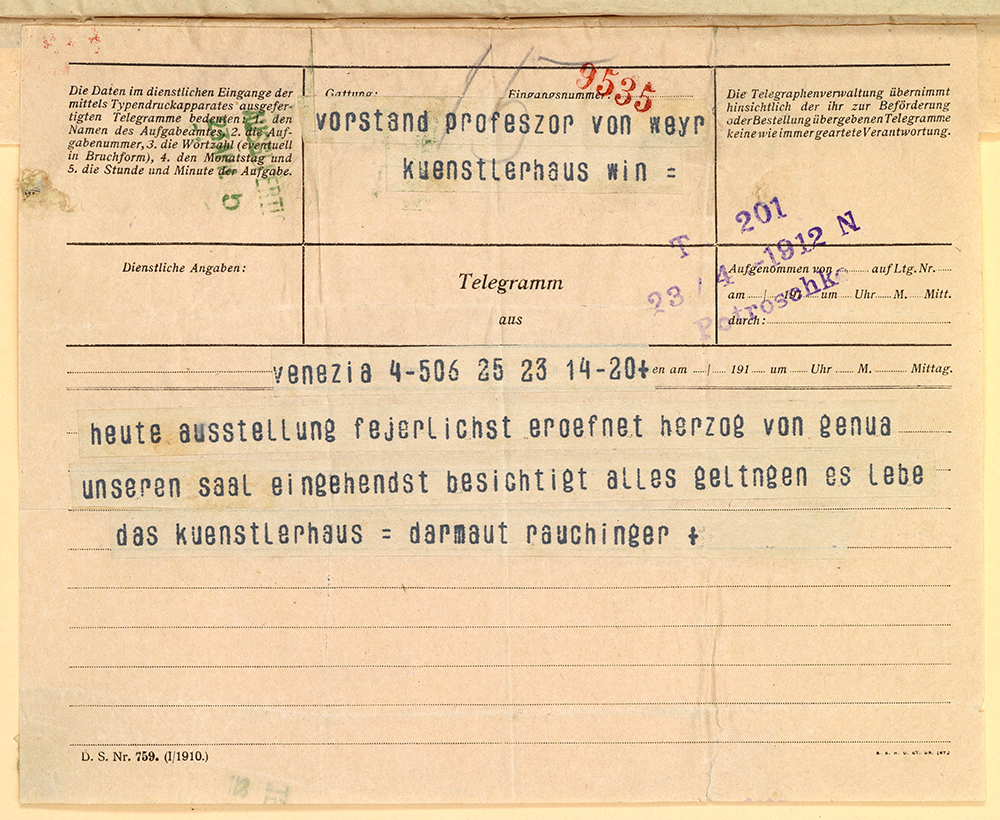 Die Daten im dienstlichen Eingange der
mittels Typendruckapparates ausgefer-
tigten Telegramme bedeuten: 1. den
Namen des Aufgabeamtes, 2. die Auf-
gabenummer, 3. die Wortzahl (eventuell
in Bruchform), 4. den Monatstag und
5. die Stunde und Minute der Aufgabe.
15
Gattung:
Eingangsnummer:
9535
vorstand profeszor von weyr
kuenstlerhaus win =
Die Telegraphenverwaltung übernimmt
hinsichtlich der ihr zur Beförderung
oder Bestellung übergebenen Telegramme
keine wie immer geartete Verantwortung.
T 201
23/4 -1912 N
Petroschka
Dienstliche Angaben:
Telegramm
aus
Aufgenommen von auf Ltg. Nr.
am / 191 um Uhr M. Mitt.
durch:
venezia 4-506 25 23 14-20+ en am / 191 um Uhr M. Mittag.
heute ausstellung fejerlichst eroefnet herzog von genua
unseren saal eingehendst besichtigt alles geltngen es lebe
das kuenstlerhaus = darmaut rauchinger +
D. S. Nr. 759. (I/1910.)